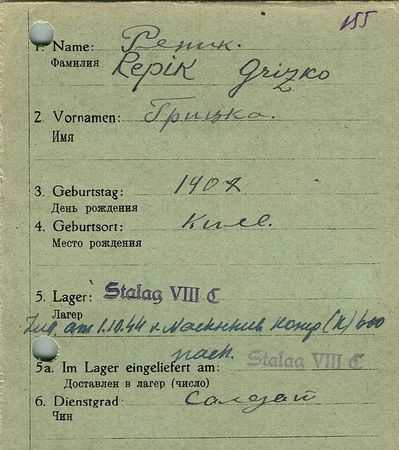 155
1. Name: Репик.
Фамилия Repik Grizko
2. Vornamen: Грицка.
Имя
3. Geburtstag: 1907
День рождения
4. Geburtsort: Киев.
Место рождения
5. Lager: Stalag VIII C
Лагер
am 1.10.44 v. Nachschub Komp (K) 600
nach. Stalag VIII C
5a. Im Lager eingeliefert am:
Доставлен в лагер (число)
6. Dienstgrad: салдат
Чин